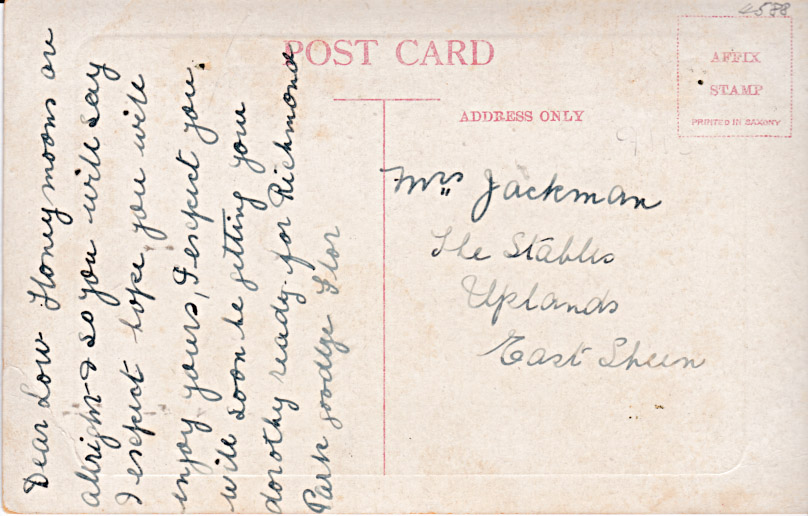 4588
POST CARD
AFFIX
STAMP
PRINTED IN SAXONY
ADDRESS ONLY
Mrs Jackman
The Stables
Uplands
East Sheen
Dear Low Honeymoons are
allright & so you will say
I expect hope you will
enjoy yours, I expect you
will soon be getting your
dorothy ready for Richmond
Park goodbye Flor